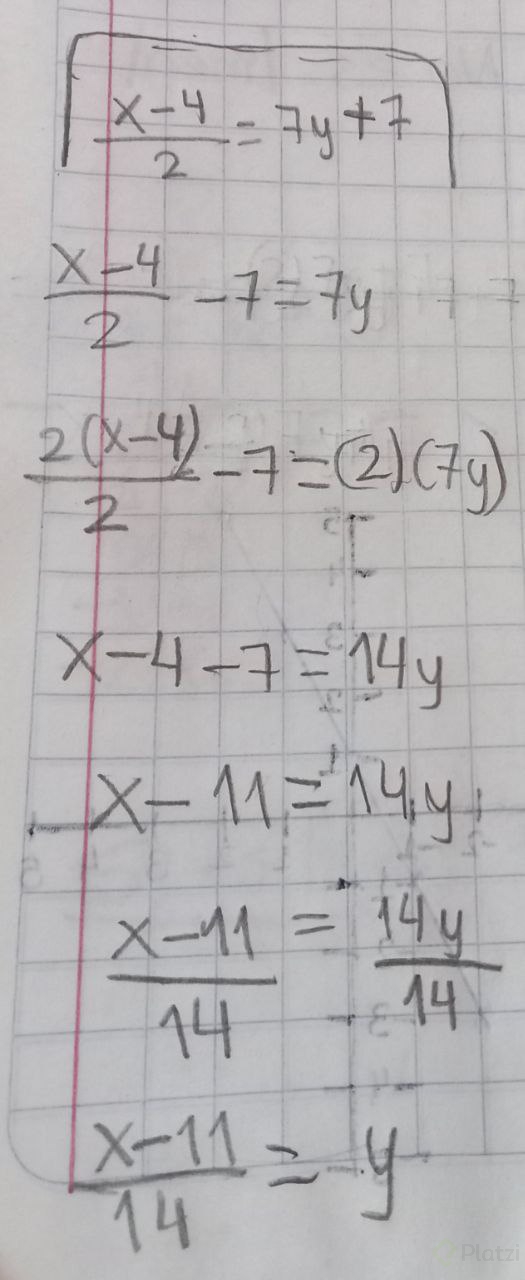 x-4/2 = 7y+7
x-4/2 -7=7y
2(x-4)/2 -7=(2)(7y)
x-4-7=14y
x-11=14y
x-11/14 = 14y/14
x-11/14 = y
Platzi